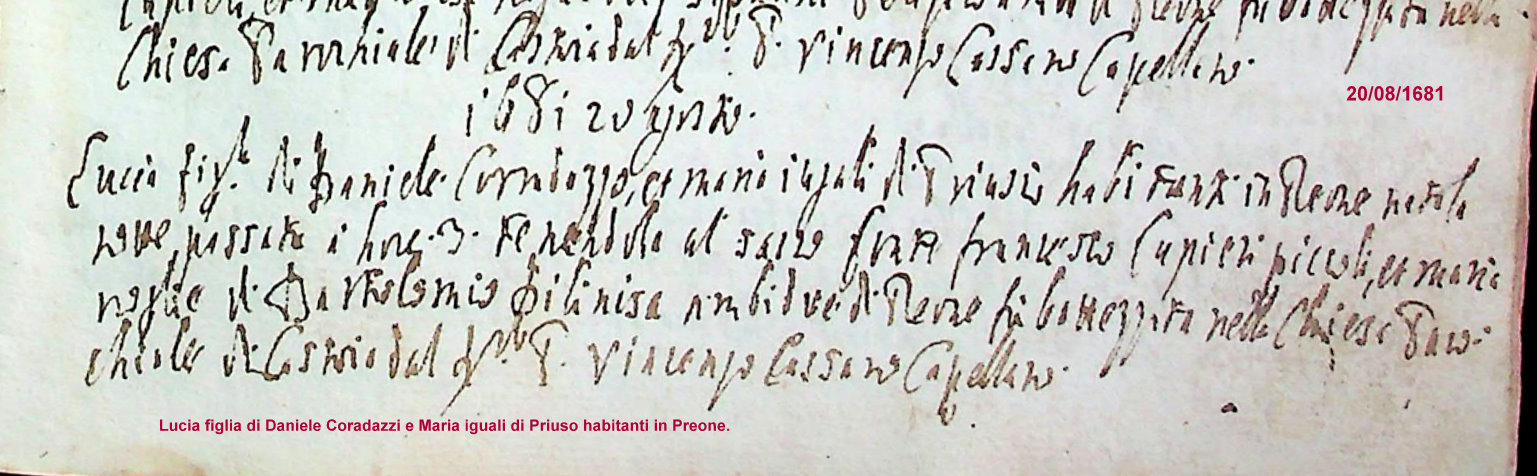 Chiesa Parochiale di Castoia dal P. Vincenzo Cassano Capellano.
20/08/1681
1681 20 Agosto.
Lucia figl. di Daniele Corradazzo, et maria iugali di Priusio habitanti in Preone nata la
passata a hore 3. tenendola al sacro fonte francesco Lupieri piccoli, et maria
moglie di Bartolomio ambidue di Preone fù battezzata nella Chiesa Paro-
chiale di dal P. Vincenzo Cassano Capellano.
Lucia figlia di Daniele Coradazzi e Maria iguali di Priuso habitanti in Preone.